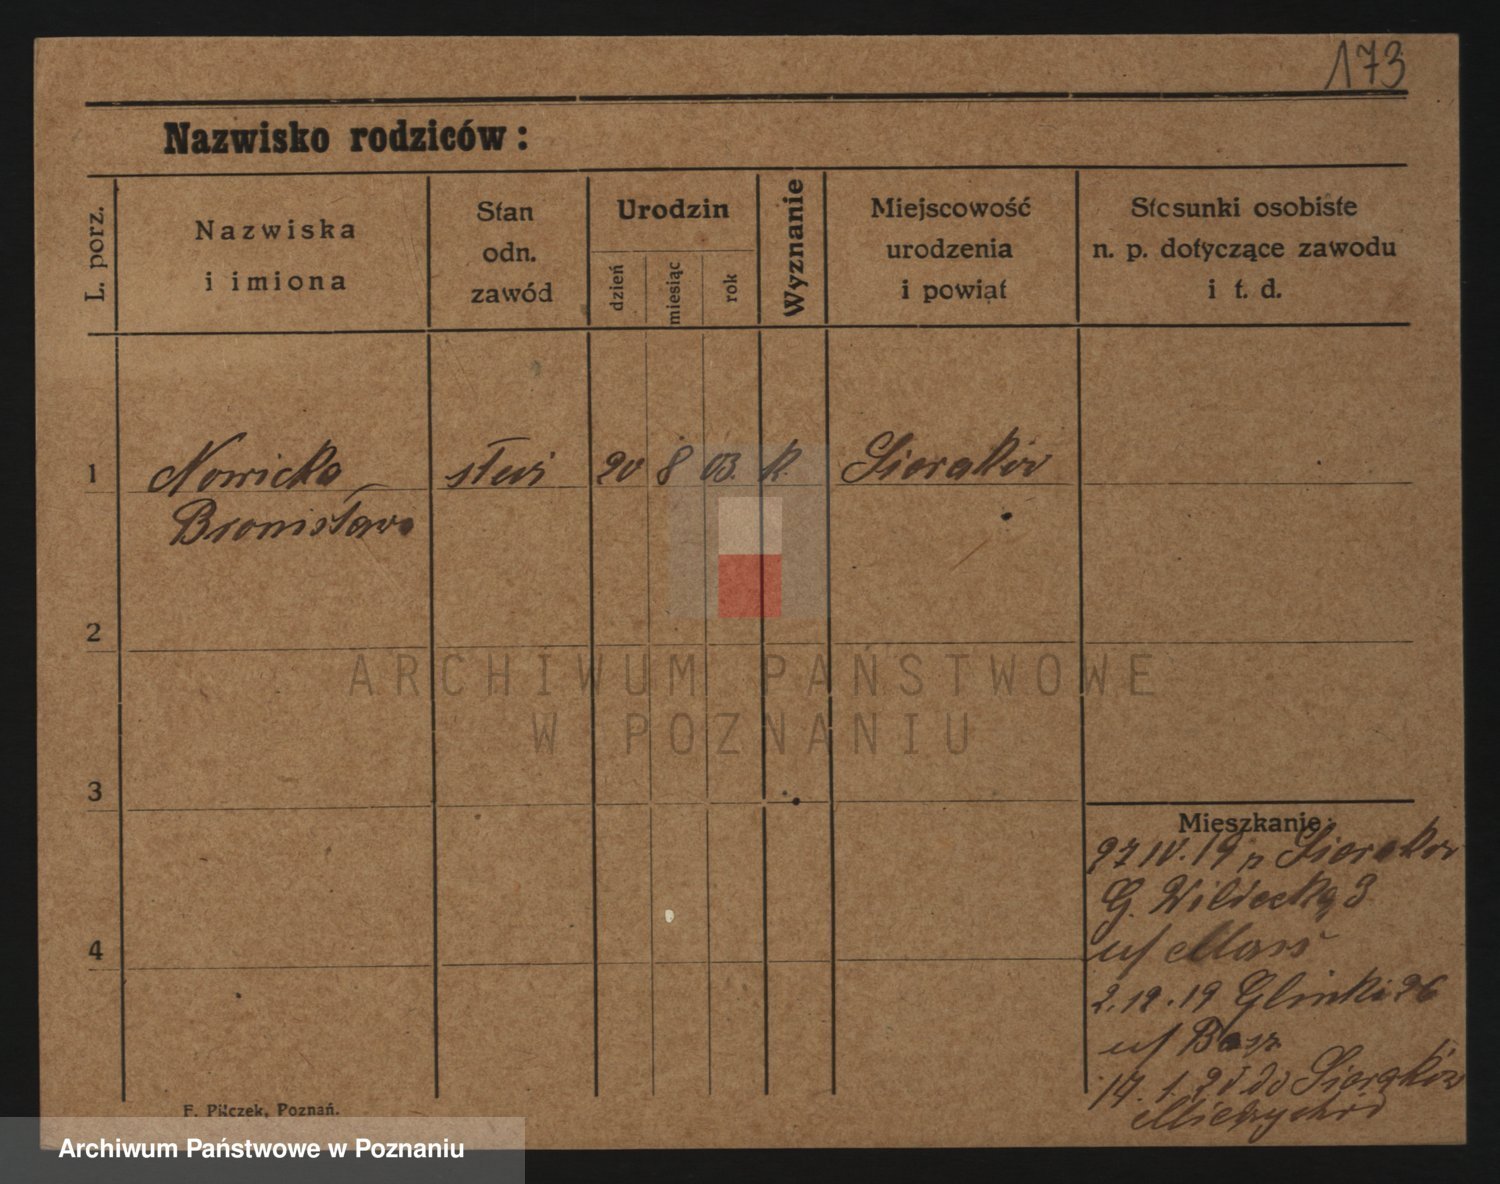 173
Nazwisko rodziców:
L. porz.
Nazwiska
i imiona
Stan
odn.
zawód
Urodzin
dzień
miesiąc
rok
Wyznanie
Miejscowość
urodzenia
i powiat
Stosunki osobiste
n. p. dotyczące zawodu
i t. d.
1 Nowicka 20 8 03. k. Sieraków
Bronisława
2
3
4
ARCHIWUM PAŃSTWOWE
W POZNANIU
Mieszkanie:
27 IV. 19 z Sierakow
G. 3
u/
2.12.19 Glinki 26
u/
14. 1. do Sieraków
F. Pilczek, Poznań.
Archiwum Państwowe w Poznaniu